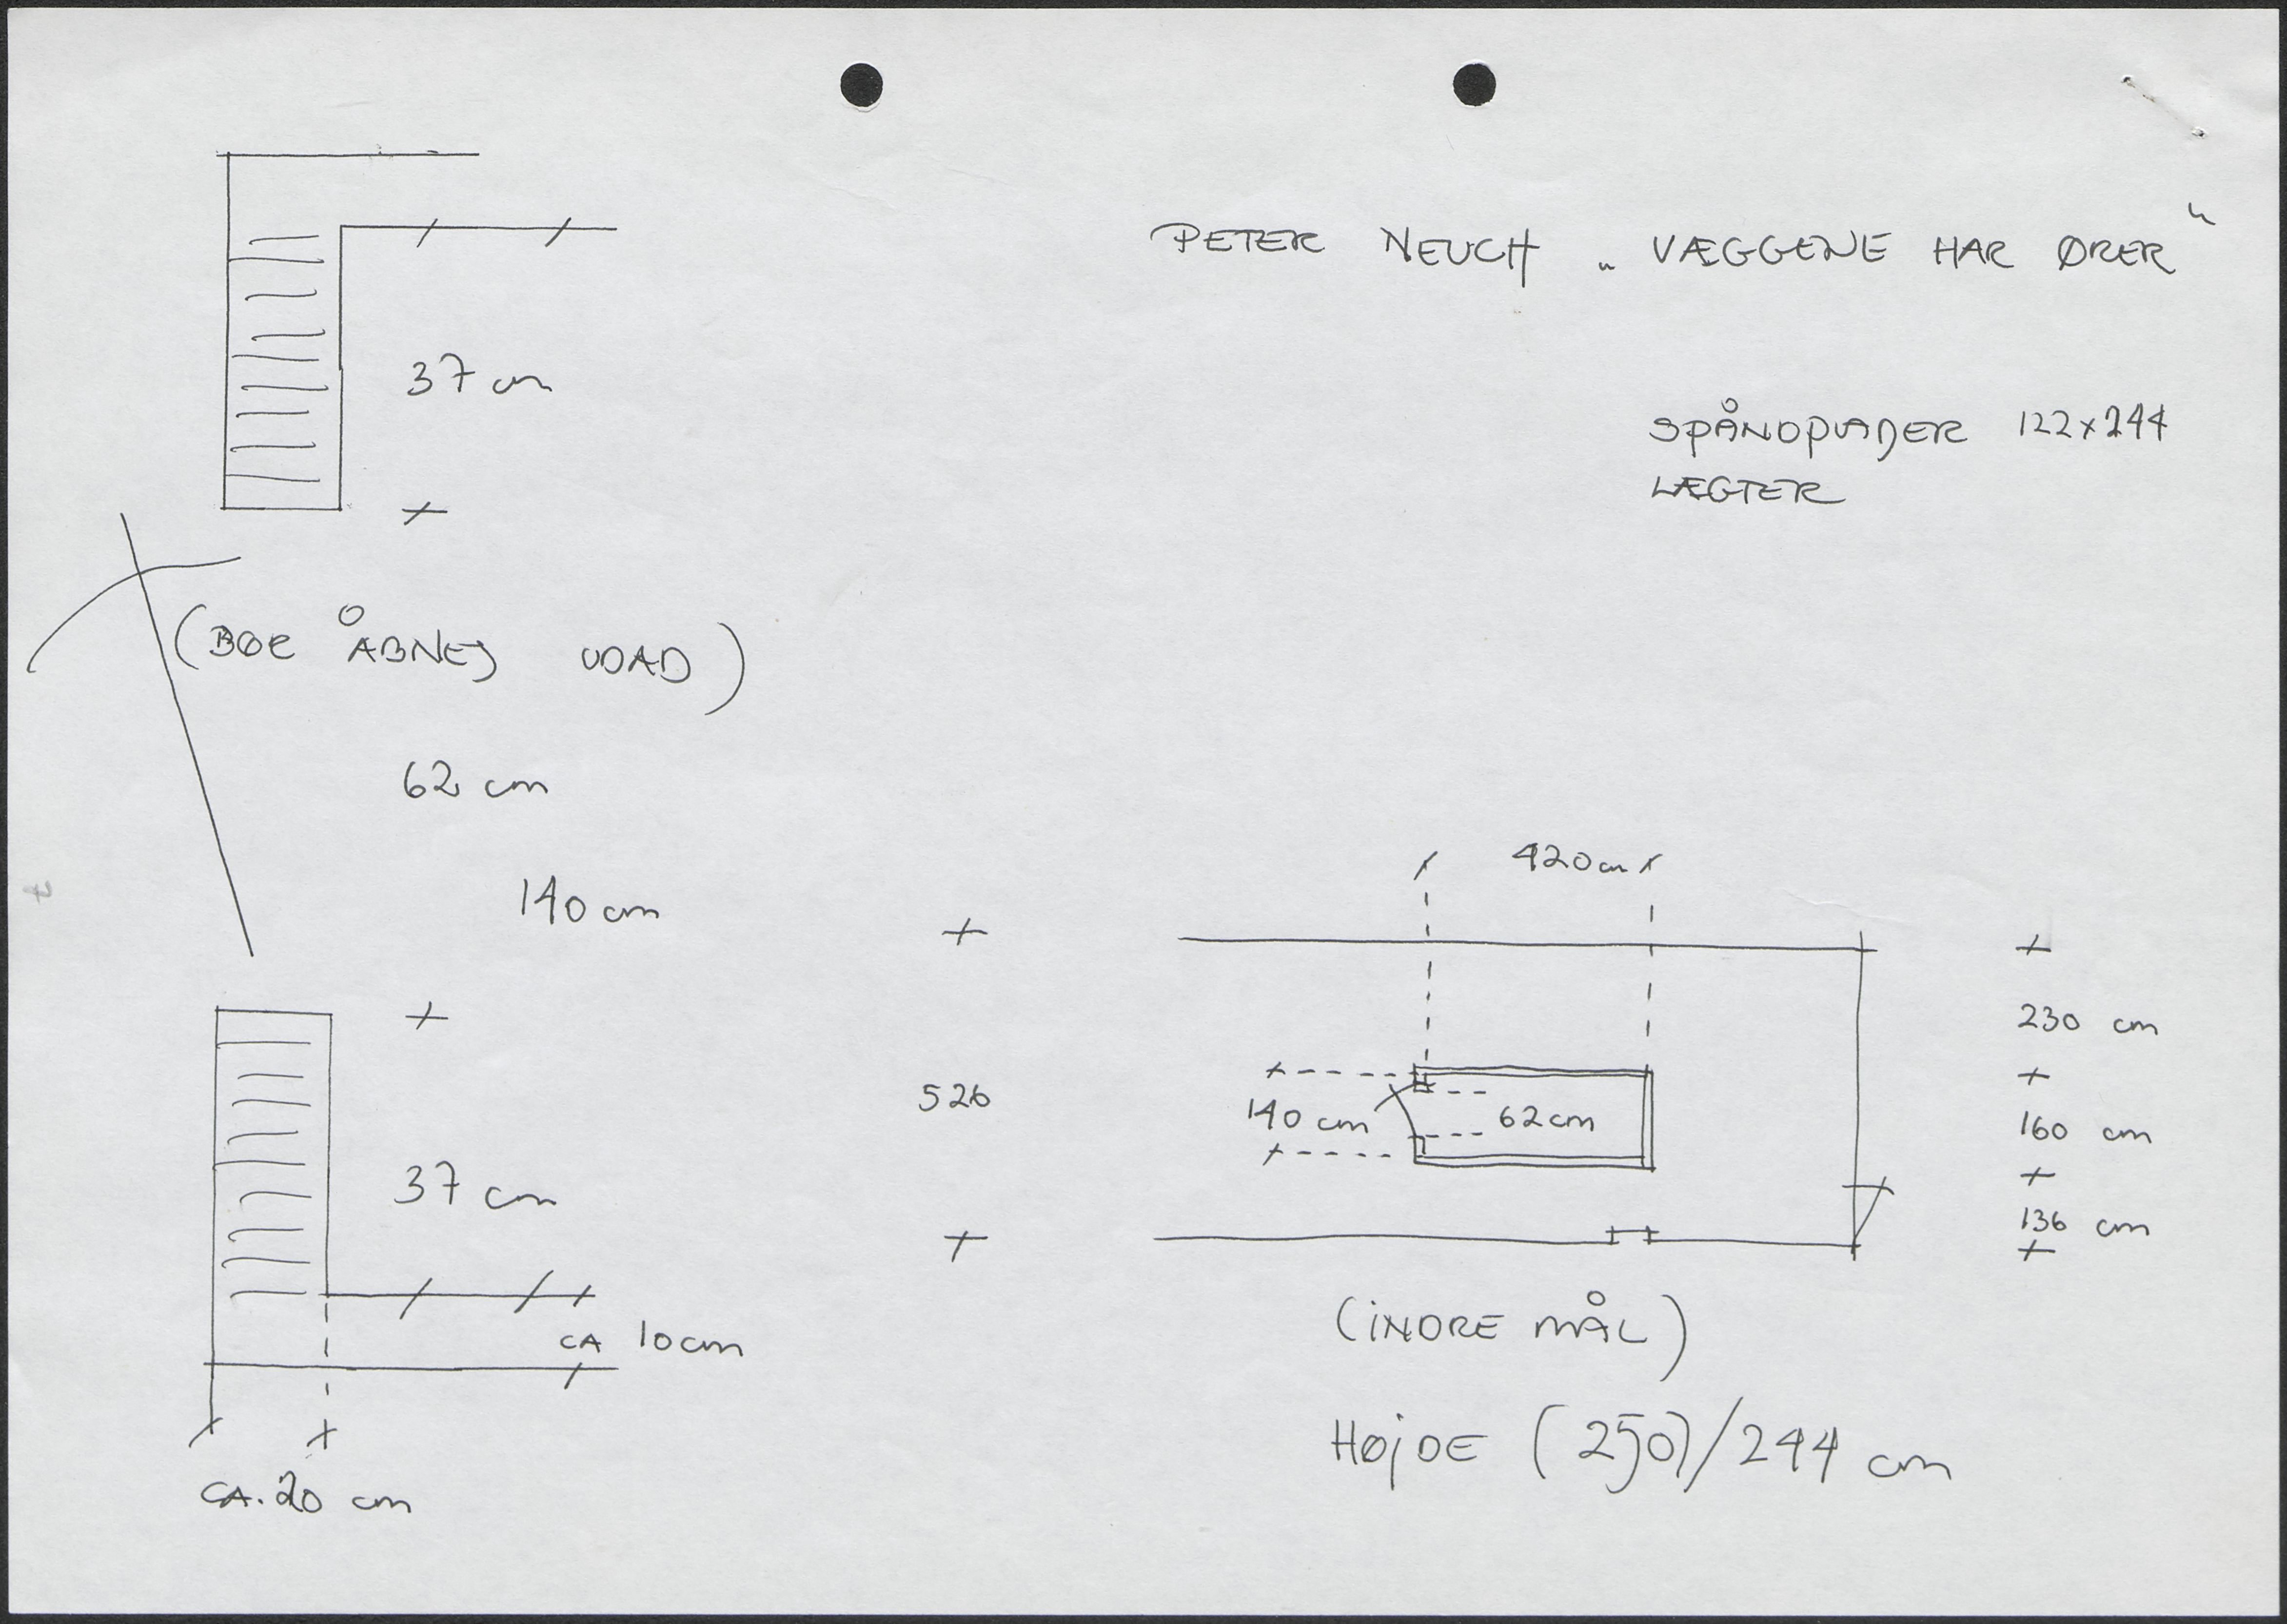 PETER NEUCH „VÆGGENE HAR ØRER"
SPÅNDPLADER 122x244
LÆGTER
37 cm
(BØR ÅBNES UDAD)
62 cm
140 cm
37 cm
CA 10 cm
CA. 20 cm
420 cm
526
140 cm
62 cm
230 cm
160 cm
136 cm
(INDRE MÅL)
HØJDE (250)/244 cm